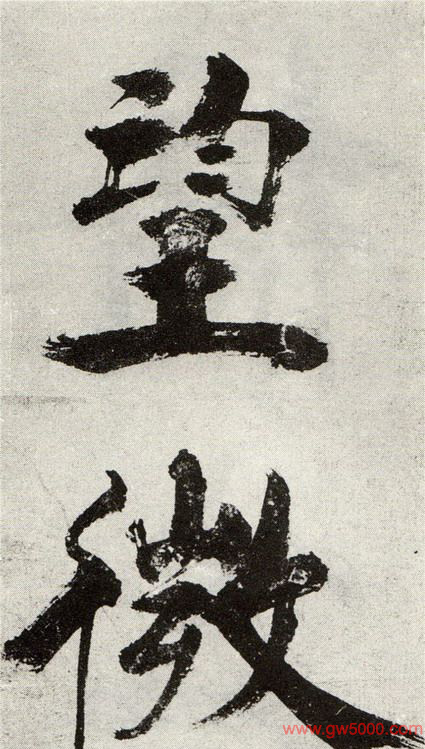 望
微
www.gw5000.com